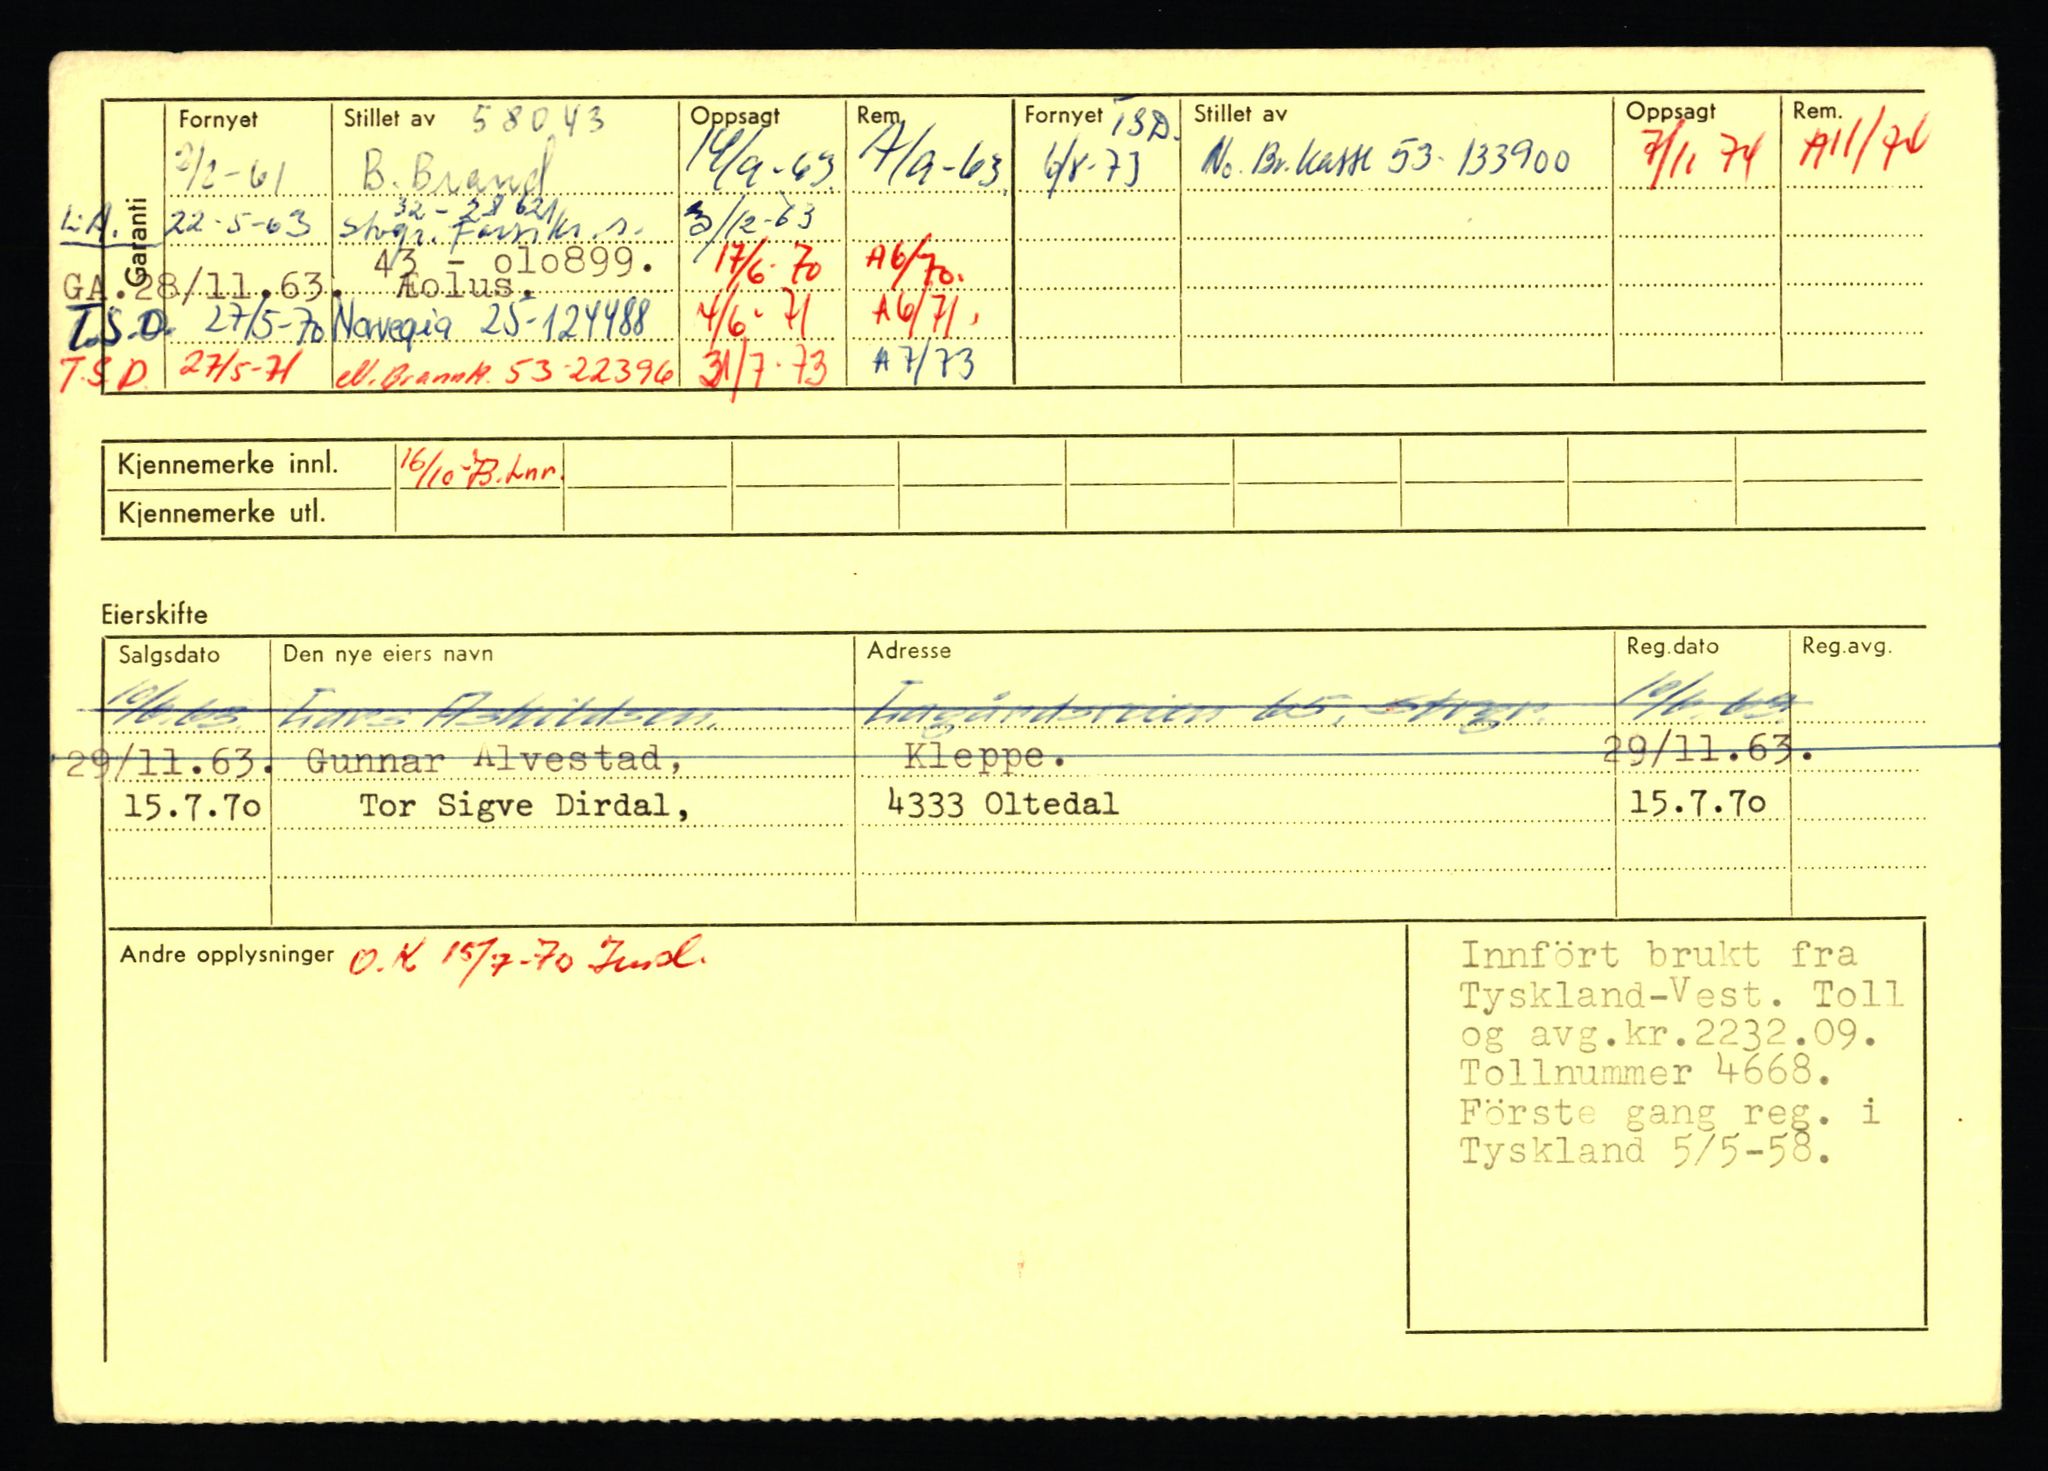 Garanti
Fornyet Stillet av 58043 Oppsagt Rem. Fornyet T.S.D. Stillet av Oppsagt Rem.
2/2-61 B. Brand 14/9-63 A/9-63 6/8-73 No. Br.kasse 53-133900 7/11 74 A11/74
32-28621
L.A. 22-5-63 Stvgr. Forsikr. s. 3/12-63
43 - olo899. 17/6-70 A6/70.
GA.28/11.63. Æolus.
T.S.D. 27/5-70 Norvegia 25-124488 4/6-71 A6/71.
T.S.D. 27/5-71 N. Brannk. 53-22396 31/7-73 A7/73
Kjennemerke innl. 16/10
Kjennemerke utl.
Eierskifte
Salgsdato Den nye eiers navn Adresse Reg.dato Reg.avg.
10/6.63. Lars Askildsen, Lagårdsveien 65, Stvgr. 10/6.63
29/11.63. Gunnar Alvestad, Kleppe. 29/11.63.
15.7.7o Tor Sigve Dirdal, 4333 Oltedal 15.7.7o
Andre opplysninger O.K 15/7-70
Innfört brukt fra
Tyskland-Vest. Toll
og avg.kr.2232.09.
Tollnummer 4668.
Förste gang reg. i
Tyskland 5/5-58.